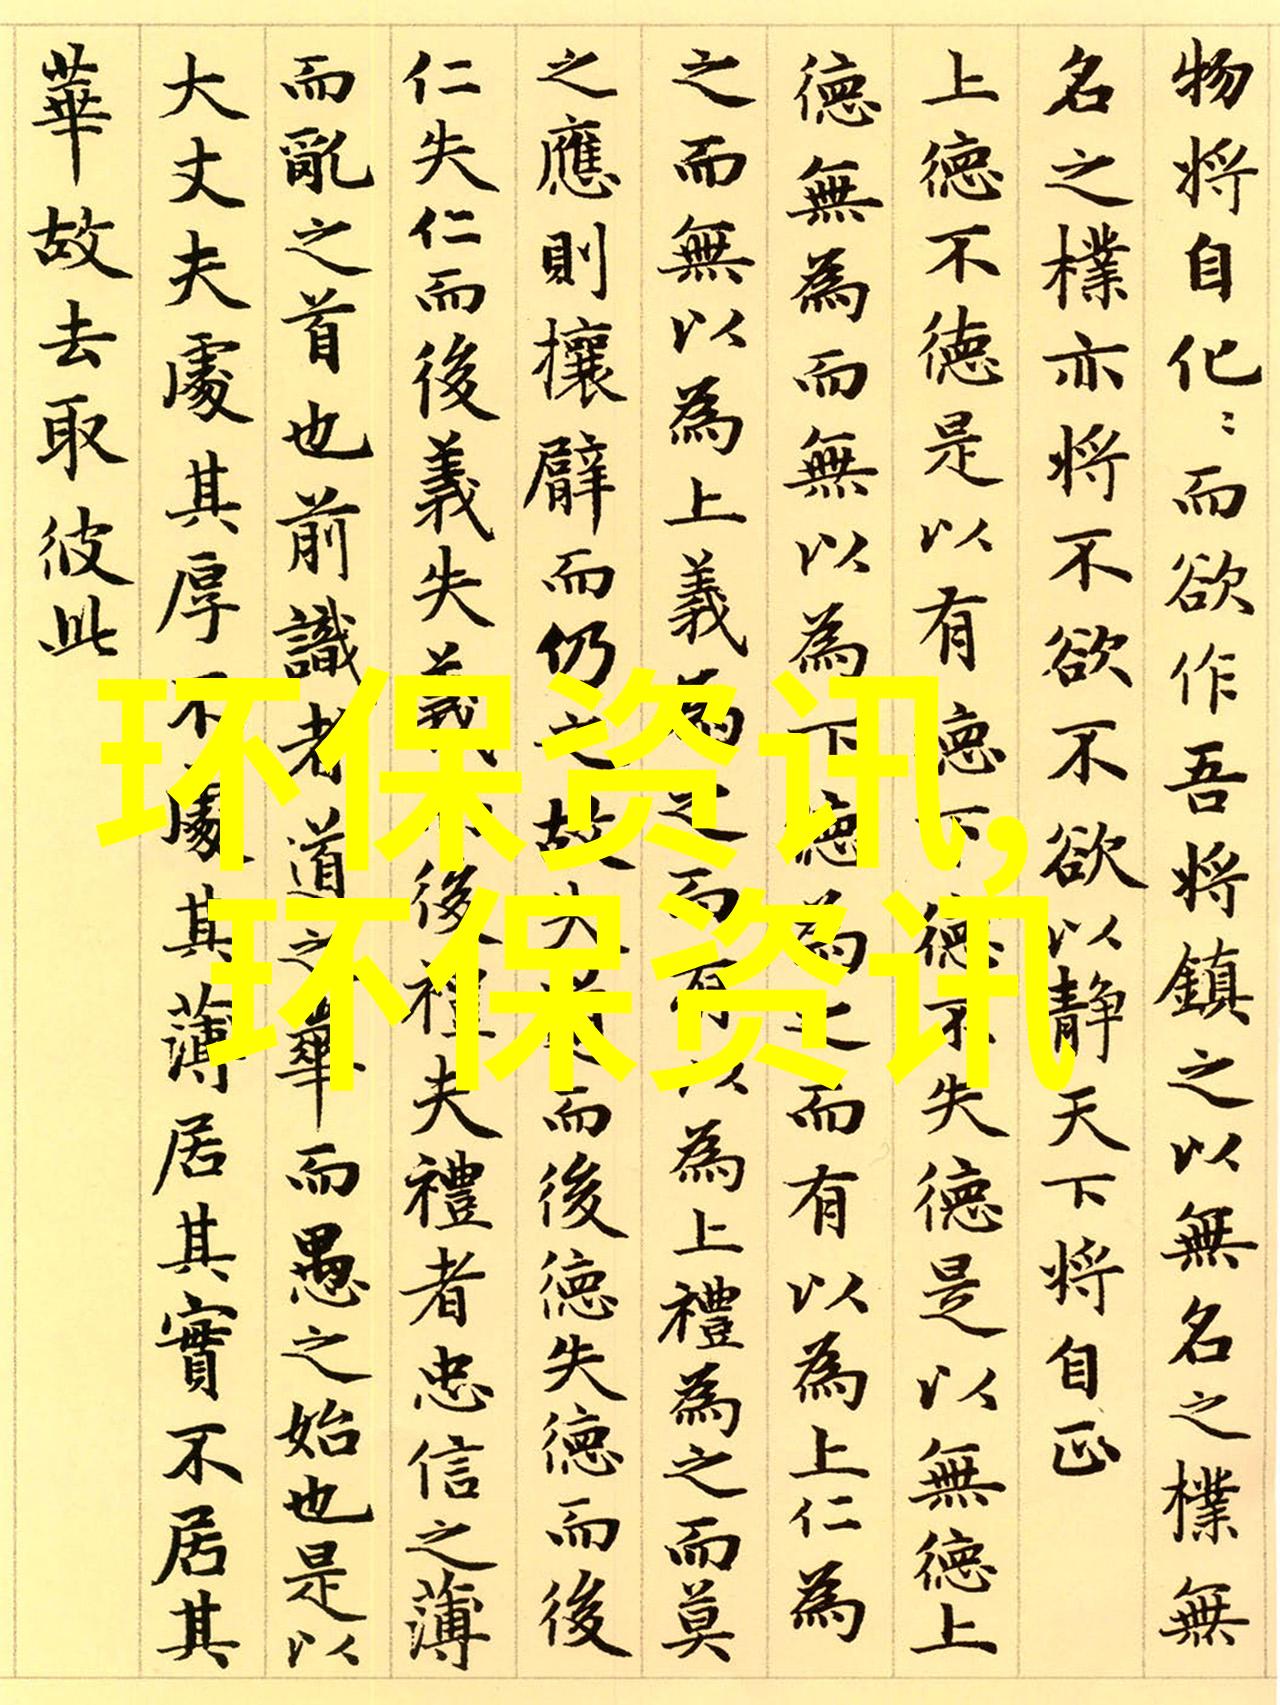 物将自化〻而欲作吾将鎮之以無名之樸無
名之樸亦将不欲不欲以静天下将自正
上德不德是以有德下德不失德是以無德上
德無為而無以為下德為之而有以為上仁為
之而無以為上義為之而有以為上禮為之而莫
之應則攘臂而仍之故失道而後德失德而後
仁失仁而後義失義而後禮夫禮者忠信之薄
而亂之首也前識者道之華而愚之始也是以
大丈夫處其厚不處其薄居其實不居其
華故去取彼此
环保资讯,
环保资讯